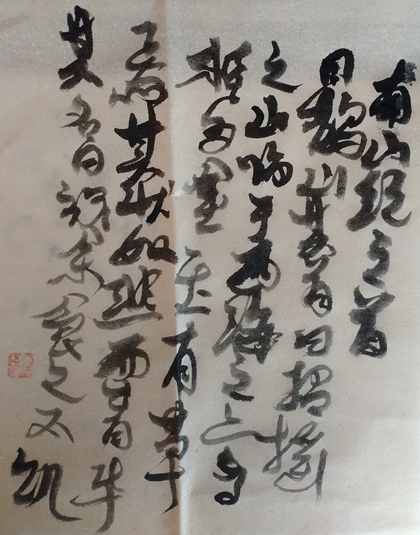 南山經之首
曰鵲山其首曰招搖
之山臨于西海之上多
桂多金玉有草
焉其狀如韭而青華
其名曰祝餘食之不飢